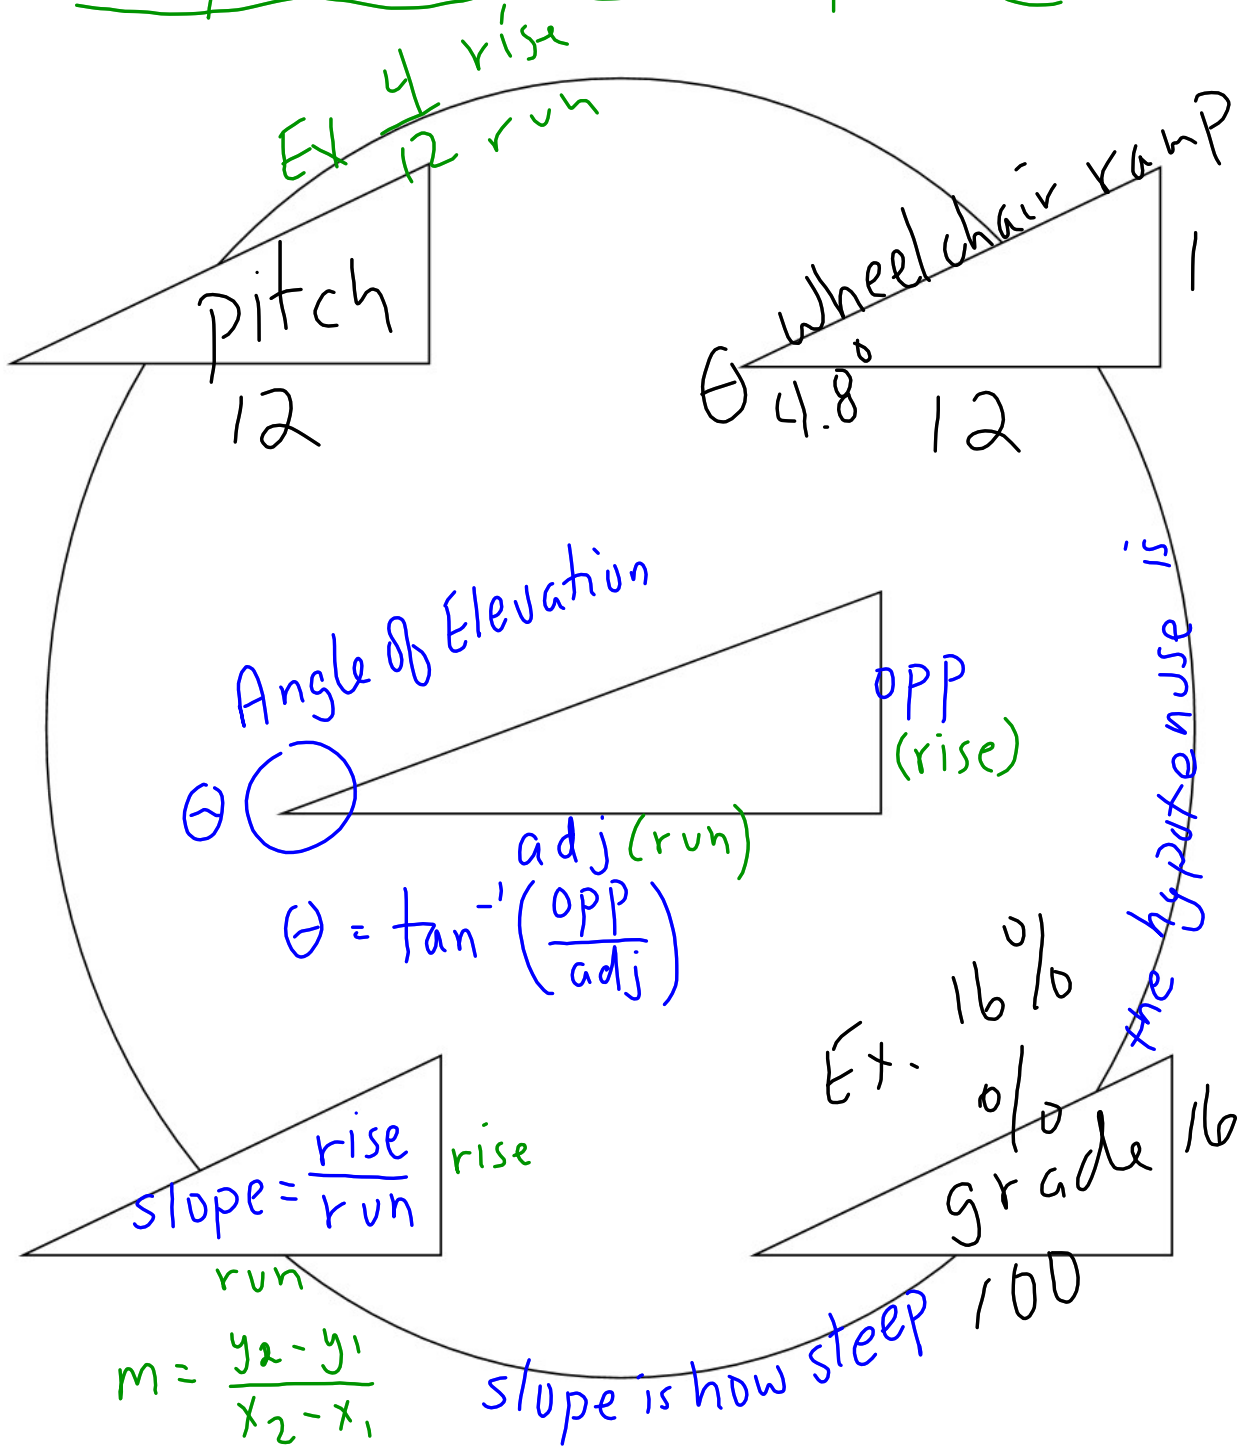 Ex 4 rise
12 run
pitch
12
wheelchair ramp
1
θ 4.8° 12
Angle of Elevation
opp
(rise)
θ
adj (run)
θ = tan⁻¹(opp/adj)
Ex. 16%
%
grade
16
100
slope = rise/run
rise
run
m = y₂-y₁/x₂-x₁
slope is how steep
the hypotenuse is